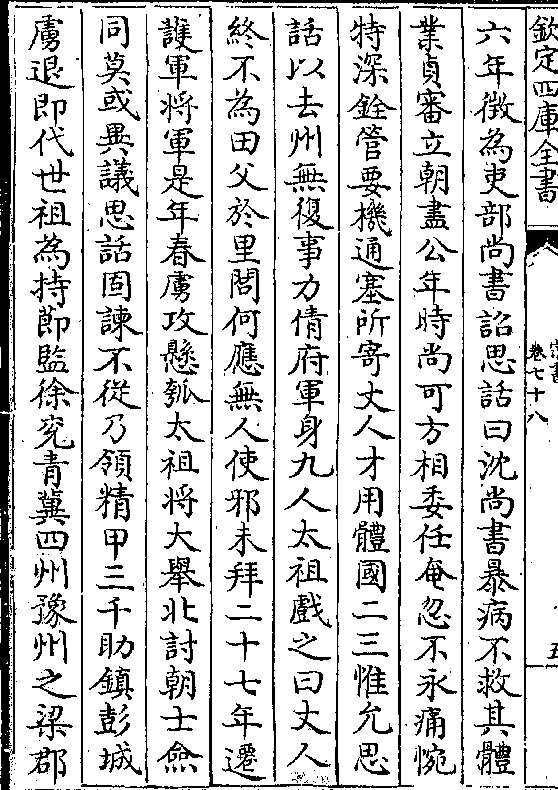 欽定四庫全書
宋書
卷七十八
五
六年徴為吏部尚書詔思話曰沈尚書暴病不救其體
業貞審立朝盡公年時尚可方相委任奄忽不永痛惋
特深銓管要機通塞所寄丈人才用體國二三惟允思
話以去州無復事力倩府軍身九人太祖戲之曰丈人
終不為田父於里閭何應無人使邪未拜二十七年遷
䕶軍将軍是年春虜攻懸瓠太祖将大舉北討朝士僉
同莫或異議思話固諫不從乃領精甲三千助鎮彭城
虜退即代世祖為持節監徐兖青冀四州豫州之梁郡